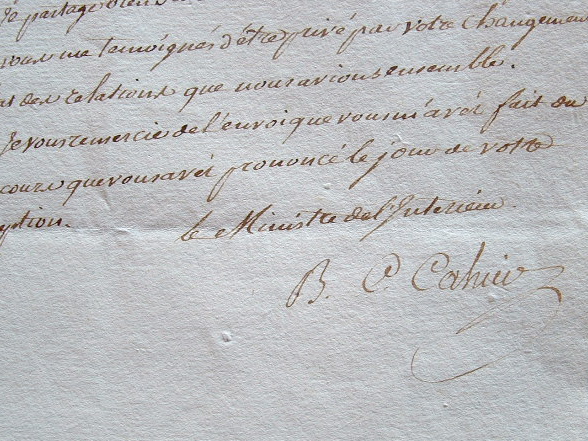 Je partage bien
vous me temoignés d'être privé par votre Changement
des relations que nous avions ensemble.
Je vous remercie de l'envoi que vous m'avés fait du
cours que vous avés prononcé le jour de votre
ption.
le Ministre de l'Interieur
B. C Cahier